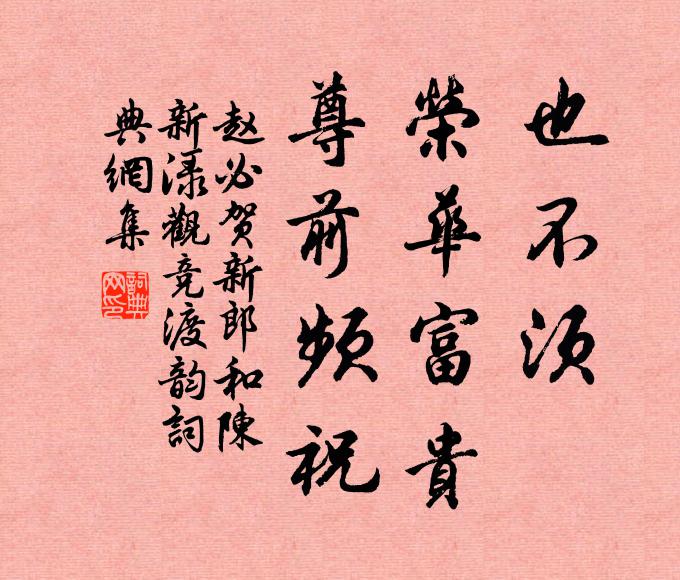 也不须
榮華富貴
尊前频祝
赵必贺新郎和陳
新渌觀竞渡韵詞
典網集
詞典网印